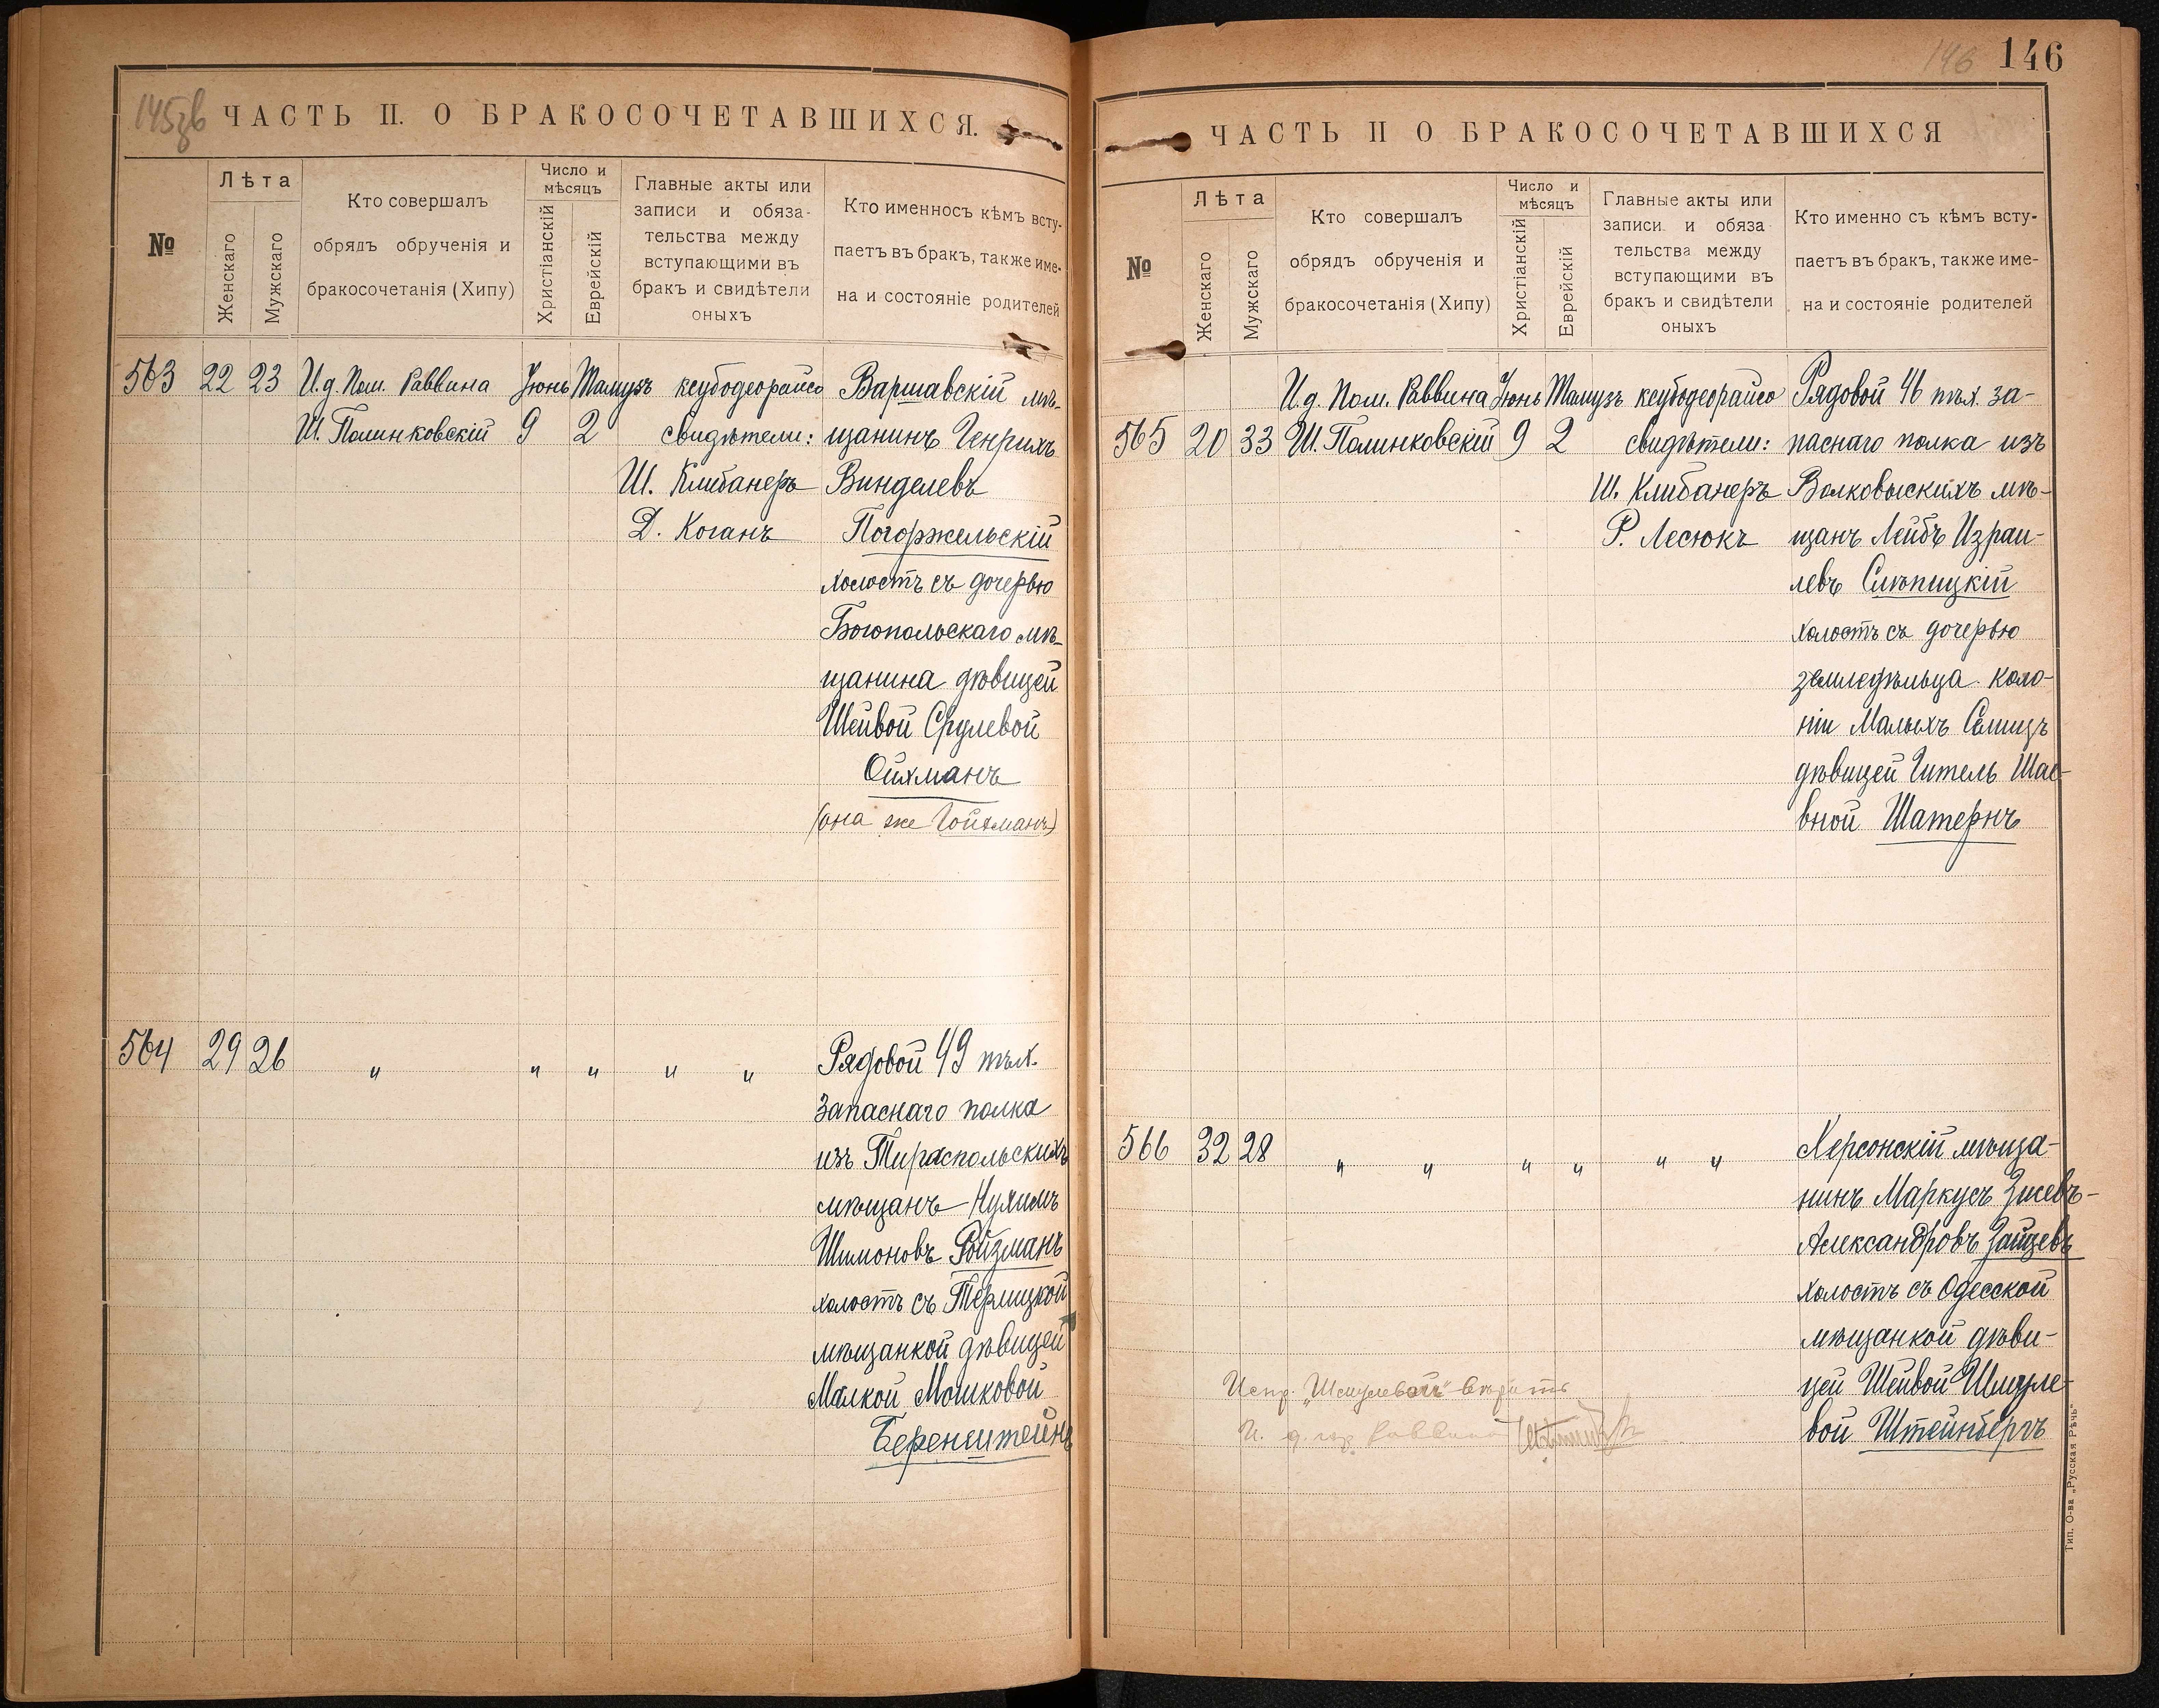 145об
ЧАСТЬ II. О БРАКОСОЧЕТАВШИХСЯ.
№
Лѣта
Женскаго
Мужскаго
Кто совершалъ
обрядъ обрученія и
бракосочетанія (Хипу)
Число и
мѣсяцъ
Христіанскій
Еврейскій
Главные акты или
записи и обяза-
тельства между
вступающими въ
бракъ и свидѣтели
оныхъ
Кто именносъ кѣмъ всту-
паетъ въ бракъ, также име-
на и состояніе родителей
563 22 23 И.д. Пом. Раввина Іюнь Тамузъ ксубодеорайсо Варшавскій мѣ-
Ш. Полинковскій 9 2 свидѣтели: щанинъ Генрихъ
Ш. Клибанеръ Винделевъ
Д. Коганъ Погоржельскій
холостъ съ дочерью
Богопольскаго мѣ-
щанина дѣвицей
Шейвой Срулевой
Ойхманъ
(она же Гойхманъ)
564 29 26 " " " " " Рядовой 49 пѣх.
Запаснаго полка
изъ Тираспольскихъ
мѣщанъ Нухимъ
Шимоновъ Ройзманъ
холостъ съ Терлицкой
мѣщанкой дѣвицей
Малкой Мошковой
Беренштейнъ
146 146
ЧАСТЬ II О БРАКОСОЧЕТАВШИХСЯ
№
Лѣта
Женскаго
Мужскаго
Кто совершалъ
обрядъ обрученія и
бракосочетанія (Хипу)
Число и
мѣсяцъ
Христіанскій
Еврейскій
Главные акты или
записи и обяза
тельства между
вступающими въ
бракъ и свидѣтели
оныхъ
Кто именно съ кѣмъ всту-
паетъ въ бракъ, также име-
на и состояніе родителей
И.д. Пом. Раввина Іюнь Тамузъ ксубодеорайсо Рядовой 46 пѣх. за-
565 20 33 Ш. Полинковскій 9 2 свидѣтели: паснаго полка изъ
Ш. Клибанеръ Волковыскихъ мѣ-
Р. Лесюкъ щанъ Лейбъ Израи-
левъ Слѣпицкій
холостъ съ дочерью
земледѣльца коло-
ніи Малыхъ Селищъ
дѣвицей Гитель Шае-
вной Шатернъ
566 32 28 " " " " " " Херсонскій мѣща-
нинъ Маркусъ Зисевъ-
Александровъ Зайцевъ
холостъ съ Одесской
мѣщанкой дѣви-
цей Шейвой Шмуле-
вой Штейнбергъ
Испр. „Шмулевой" вѣрить
И. д. Раввина
Тип. О-ва „Русская Рѣчь"